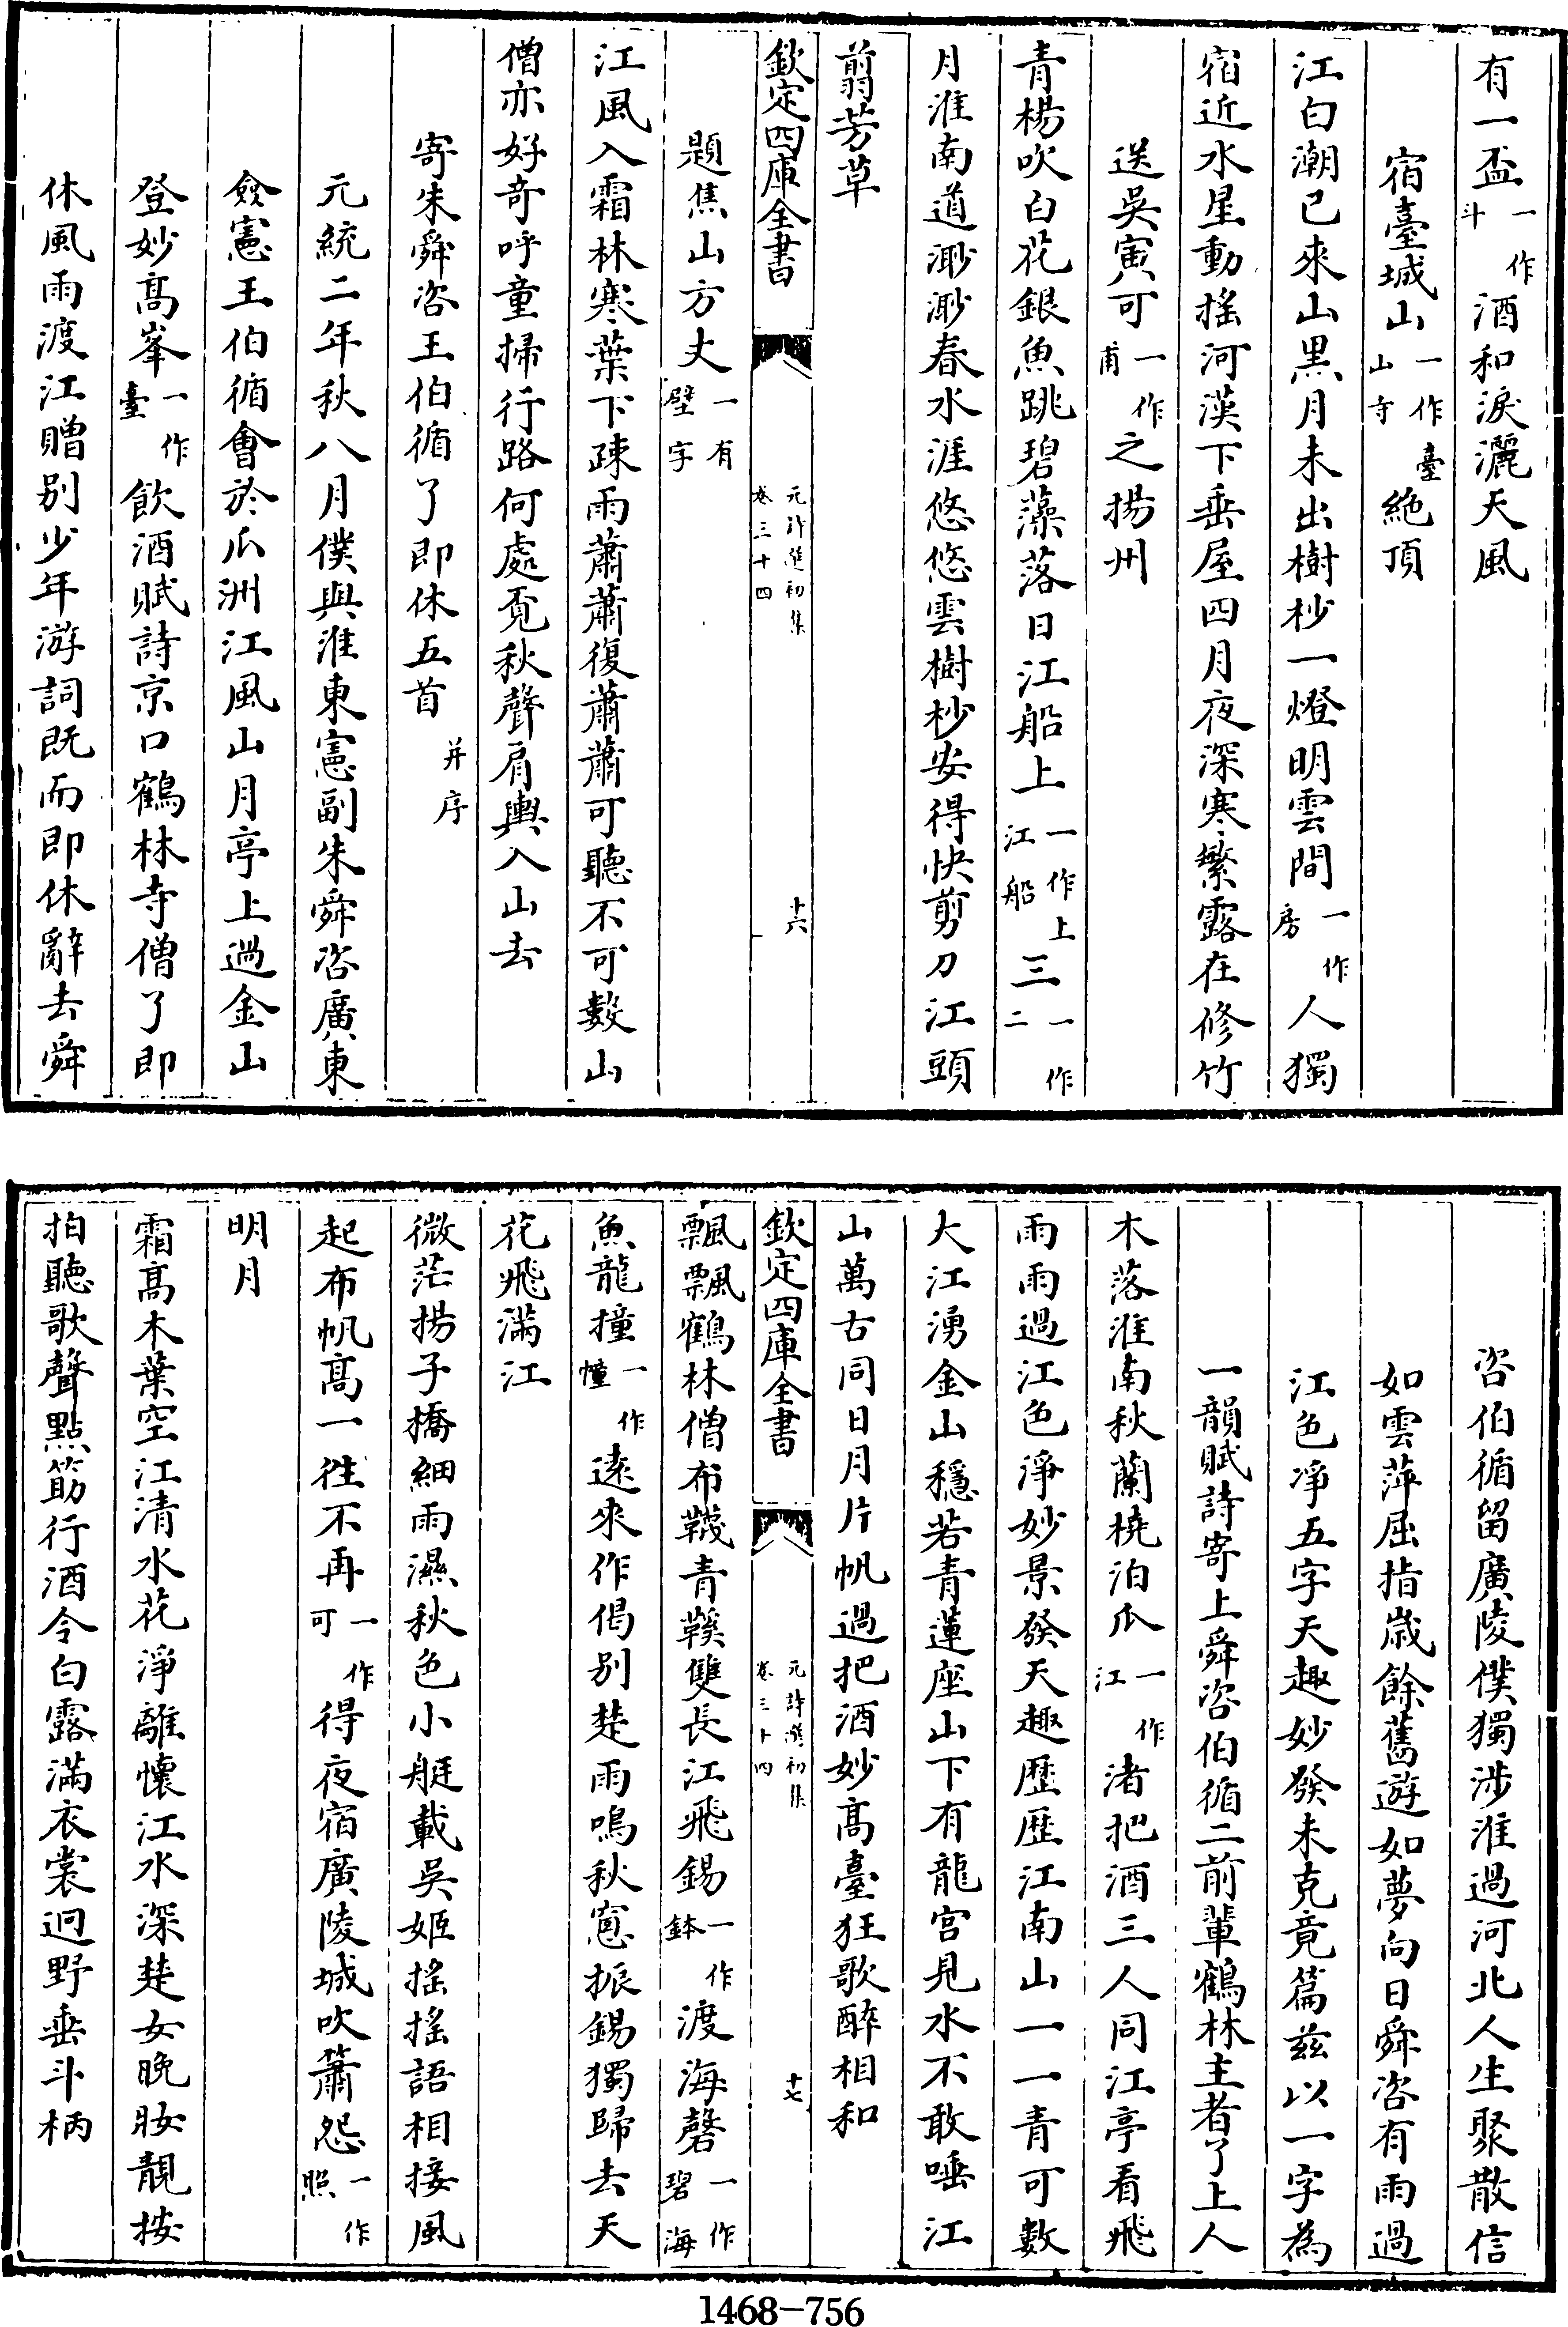 有一盃一作斗酒和淚灑天風
宿臺城山一作臺山寺絶頂
江白潮已來山黒月未出樹杪一燈明雲間一作房人獨
宿近水星動搖河漢下垂屋四月夜深寒繁露在修竹
送吳寅可一作甫之揚州
青楊吹白花銀魚跳碧藻落日江船上一作上江船三一作二
月淮南道渺渺春水涯悠悠雲樹杪安得快剪刀江頭
翦芳草
欽定四庫全書
元詩選初集
卷三十四
十六
題焦山方丈一有壁字
江風入霜林寒葉下疎雨蕭蕭復蕭蕭可聽不可數山
僧亦好奇呼童掃行路何處覓秋聲肩輿入山去
寄朱舜咨王伯循了即休五首并序
元統二年秋八月僕與淮東憲副朱舜咨廣東
僉憲王伯循會於瓜洲江風山月亭上過金山
登妙髙峯一作臺飲酒賦詩京口鶴林寺僧了即
休風雨渡江贈别少年游詞既而即休辭去舜
咨伯循留廣陵僕獨涉淮過河北人生聚散信
如雲萍屈指歲餘舊遊如夢向日舜咨有雨過
江色凈五字天趣妙發未克竟篇兹以一字為
一韻賦詩寄上舜咨伯循二前輩鶴林主者了上人
木落淮南秋蘭橈泊瓜一作江渚把酒三人同江亭看飛
雨雨過江色淨妙景發天趣歴歴江南山一一青可數
大江湧金山穩若青蓮座山下有龍宫見水不敢唾江
山萬古同日月片帆過把酒妙髙臺狂歌醉相和
欽定四庫全書
元詩選初集
卷三十四
十七
飄飄鶴林僧布韈青鞵雙長江飛錫一作鉢渡海磬一作碧海
魚龍撞一作幢逺來作偈别楚雨鳴秋窻振錫獨歸去天
花飛滿江
微茫揚子橋細雨濕秋色小艇載吳姬揺揺語相接風
起布帆髙一徃不再一作可得夜宿廣陵城吹簫怨一作照
明月
霜髙木葉空江清水花淨離懷江水深楚女晩妝靚按
拍聽歌聲點筯行酒令白露滿衣裳迥野垂斗柄
1468-756